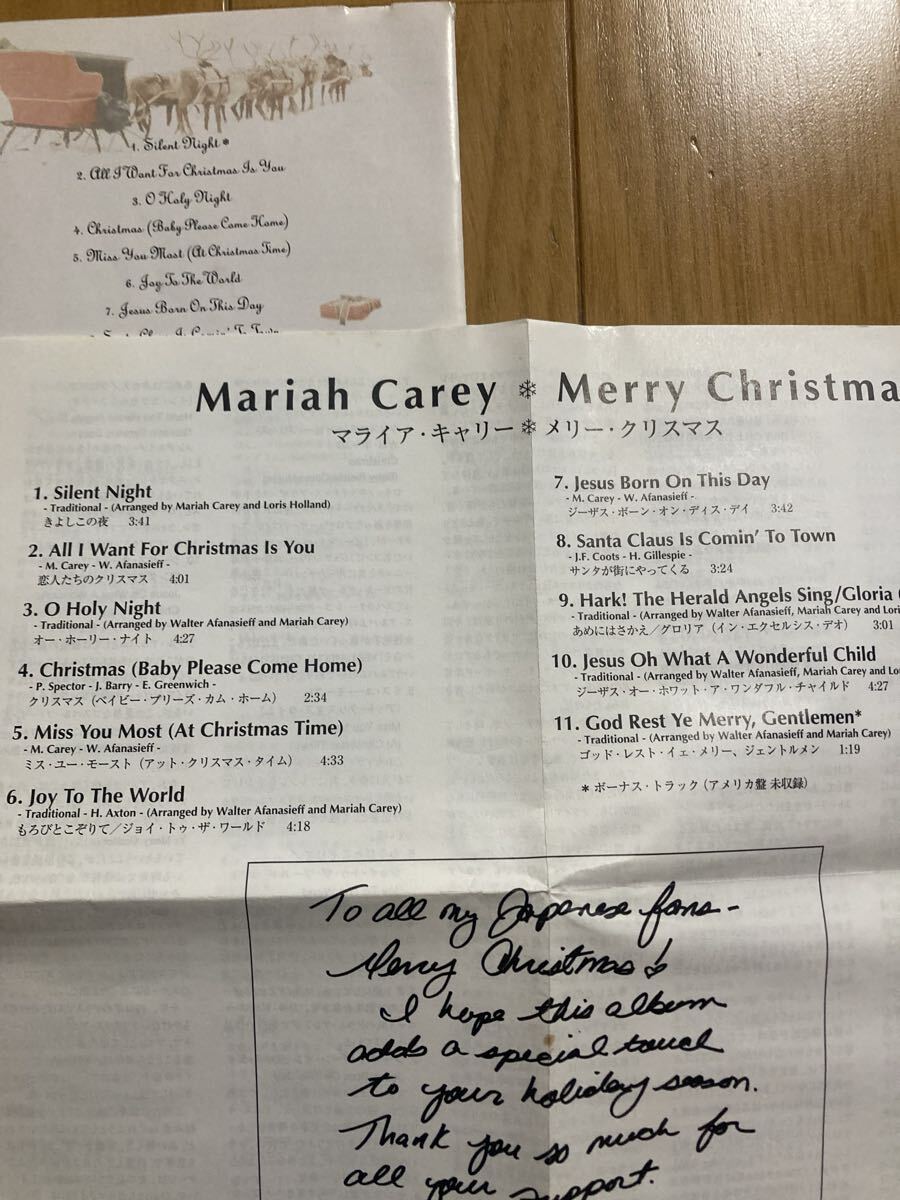 1. Silent Night *
2. All I Want For Christmas Is You
3. O Holy Night
4. Christmas (Baby Please Come Home)
5. Miss You Most (At Christmas Time)
6. Joy To The World
7. Jesus Born On This Day
Mariah Carey ❄ Merry Christma
マライア・キャリー❄メリー・クリスマス
1. Silent Night
- Traditional - (Arranged by Mariah Carey and Loris Holland)
きよしこの夜 3:41
2. All I Want For Christmas Is You
- M. Carey - W. Afanasieff -
恋人たちのクリスマス 4:01
3. O Holy Night
- Traditional - (Arranged by Walter Afanasieff and Mariah Carey)
オー・ホーリー・ナイト 4:27
4. Christmas (Baby Please Come Home)
- P. Spector - J. Barry - E. Greenwich -
クリスマス（ベイビー・プリーズ・カム・ホーム） 2:34
5. Miss You Most (At Christmas Time)
- M. Carey - W. Afanasieff -
ミス・ユー・モースト（アット・クリスマス・タイム） 4:33
6. Joy To The World
- Traditional - H. Axton - (Arranged by Walter Afanasieff and Mariah Carey)
もろびとこぞりて／ジョイ・トゥ・ザ・ワールド 4:18
7. Jesus Born On This Day
- M. Carey - W. Afanasieff -
ジーザス・ボーン・オン・ディス・デイ 3:42
8. Santa Claus Is Comin' To Town
- J.F. Coots - H. Gillespie -
サンタが街にやってくる 3:24
9. Hark! The Herald Angels Sing/Gloria (
- Traditional - (Arranged by Walter Afanasieff, Mariah Carey and Lori
あめにはさかえ／グロリア（イン・エクセルシス・デオ） 3:01
10. Jesus Oh What A Wonderful Child
- Traditional - (Arranged by Walter Afanasieff, Mariah Carey and Lo
ジーザス・オー・ホワット・ア・ワンダフル・チャイルド 4:27
11. God Rest Ye Merry, Gentlemen*
- Traditional - (Arranged by Walter Afanasieff and Mariah Carey)
ゴッド・レスト・イェ・メリー、ジェントルメン 1:19
* ボーナス・トラック（アメリカ盤 未収録）
To all my Japanese fans -
Merry Christmas!
I hope this album
adds a special touch
to your holiday season.
Thank you so much for
all your support.